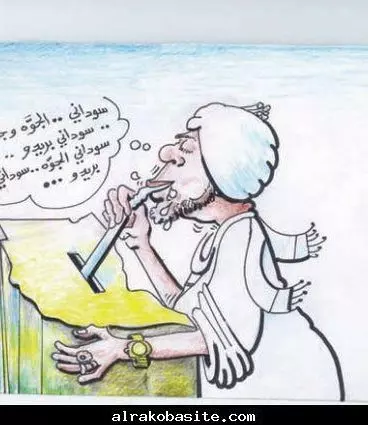 سوداني .. الجوّه وجـ
.. سوداني بريدو ..
سوداني الجوّه .. سوداني
بريدو ...
alrakobasite.com